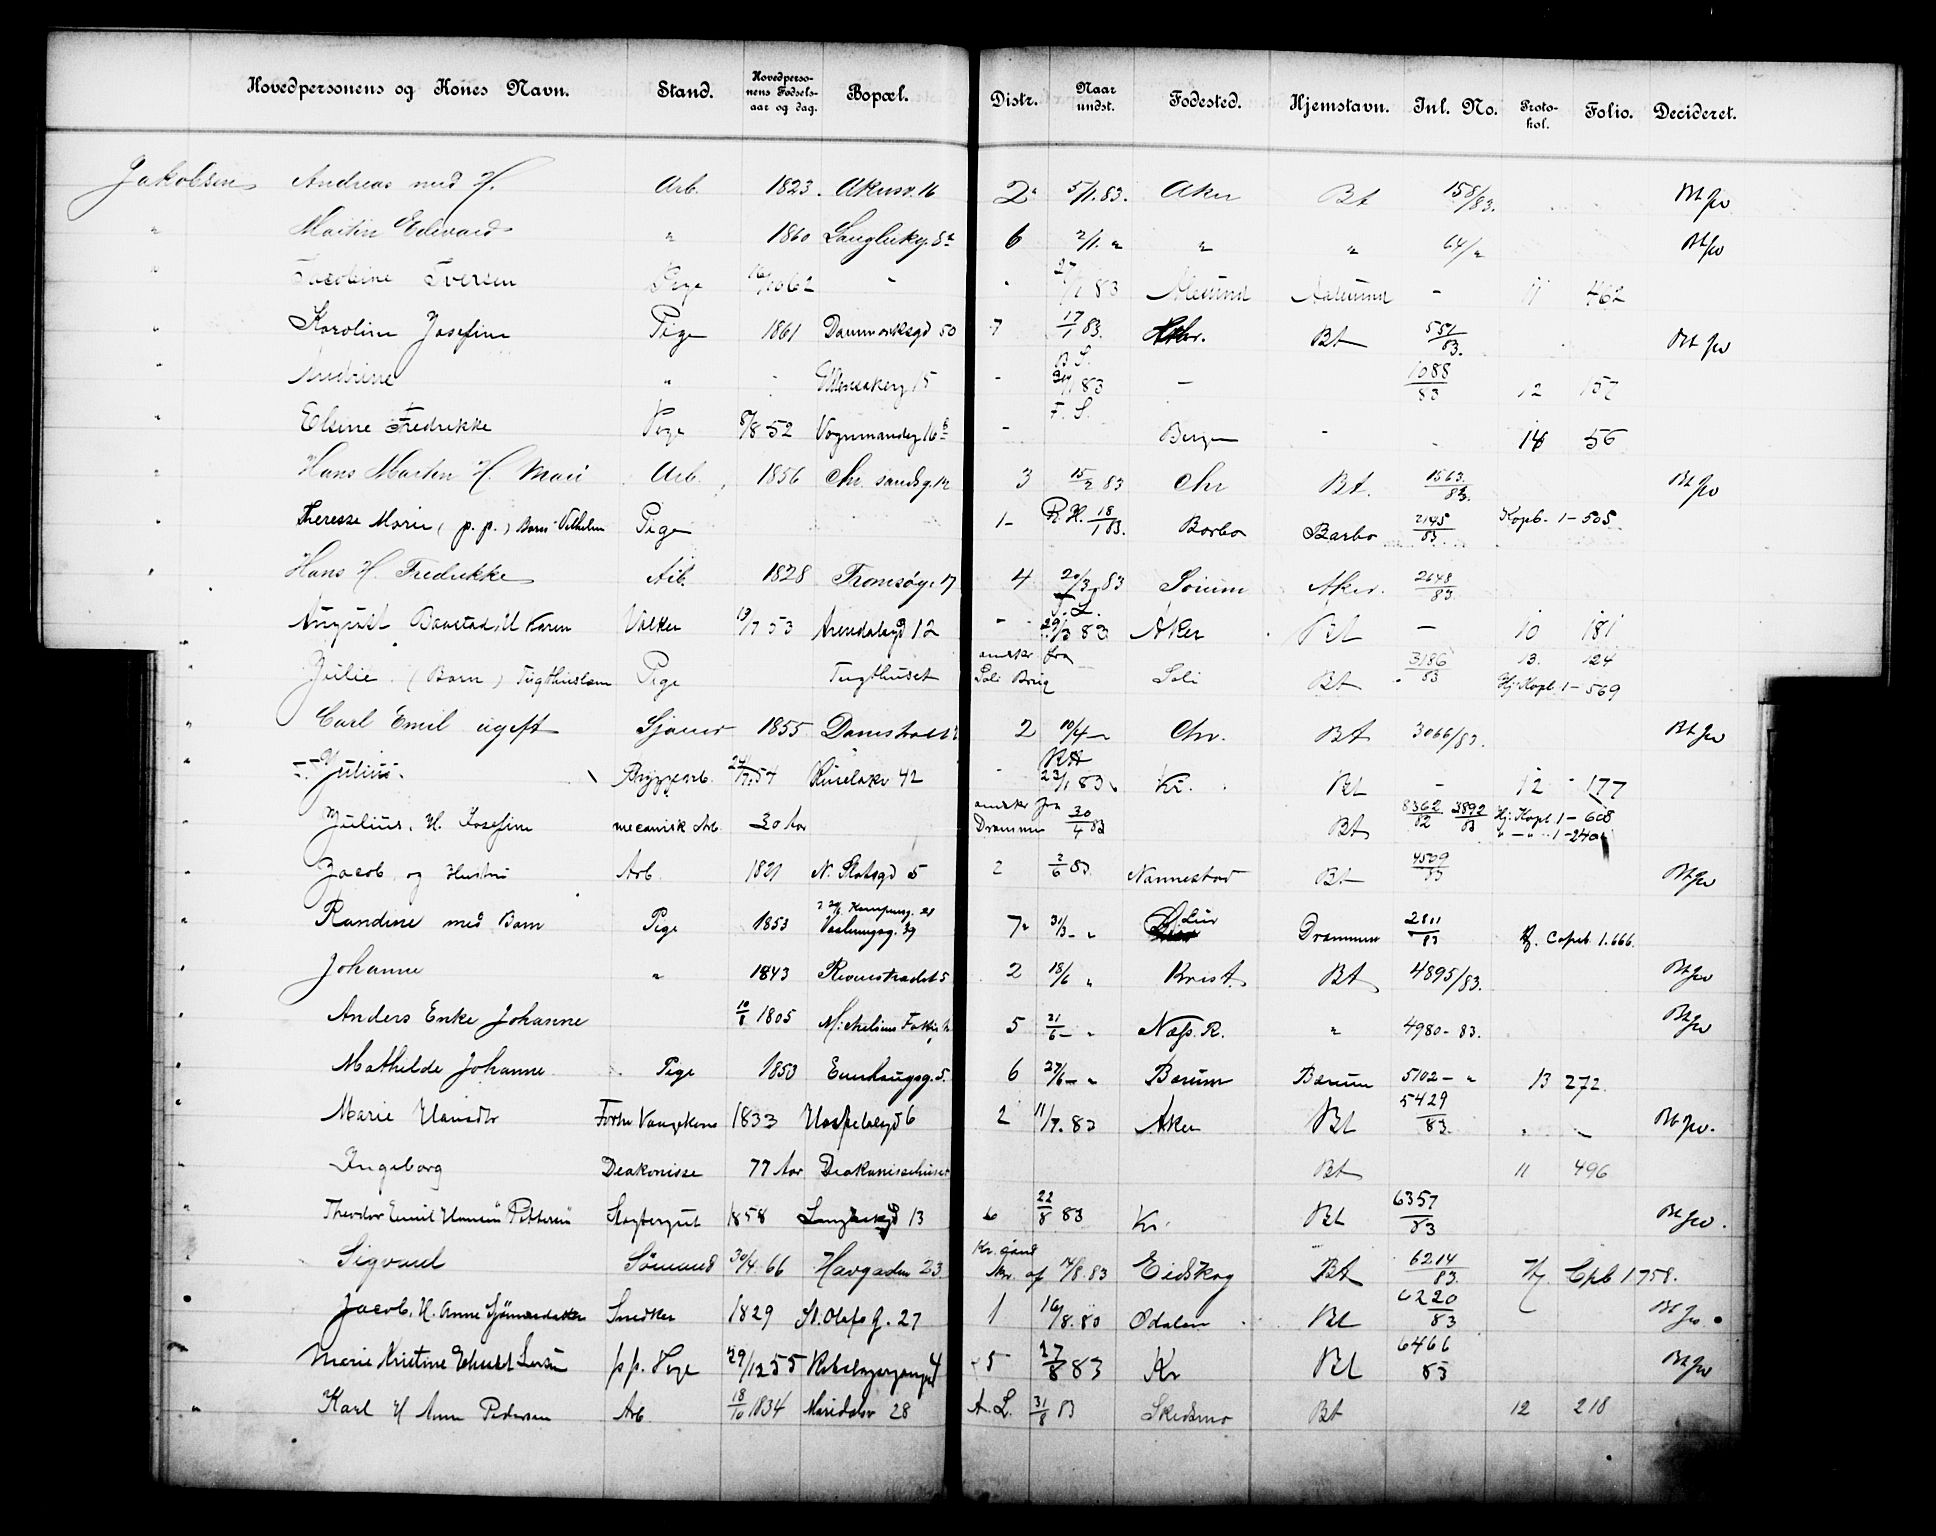 Hovedpersonens og Kones Navn. Stand. Hovedpersonens Fødselsaar og dag. Bopæl. Distr. Naar undst. Fødested. Hjemstavn. Inl. No. Protokol. Folio. Decideret.
Jakobsen Andreas med H. Arb. 1823. Akersv. 16 2 5/1. 83. Aker Bt 158/83.
" Martin Edvard " 1860 6 2/1. " " " 64/"
" Jacobine Iversen Pige 16/10 62 - - 27/1 83 Alesund Aalesund - 11 462
" Karoline Josefine Pige 1861 Danmarksgd 50 7 17/1 83. Chr. Bt 551/83.
" Andrine " Ullensakerg. 15 - B S. 24/1 83 - 1088/83 12 157
" Elsine Fredrikke Pige 8/8 52 Vognmandsg. 16 b - F. S. Bergen - - 14 56
" Hans Martin H. Mari Arb. 1856 Chr. sandsg. 12 3 15/2 83 Chr Bt. 1563/83.
" Therese Marie (p. p.) Barn Vilhelm Pige 1- R. H. 18/1 83. Barbo Barbo 2145/83 Kopb. 1-505
" Hans H. Fredrikke Arb. 1828 Tromsøg. 17 4 20/3 83 Sørum Aker. 2648/83
August Baastad, H Karen Valker 19/7 53 Arendalsgd 12 - F. L. 29/3 83 Aker Bt - 10 181
" Julie (Barn) Tugthuslem Pige Tugthuset anskr fra Soli Brug Soli Bt 3186/83 13. 124 Hj: Kopb. 1-569
" Carl Emil ugift Sjauer 1855 2 10/4 - Chr. Bt 3066/83.
" Julius. Bryggearb. 24/7 54 42 - RH 23/1 83 Kr. Bt - 12 177
" Julius, H. Josefine mecanisk Arb. 30 Aar anskr fra Drammen 30/4 83 Bt 8362/82 3892/83 Hj: Kopb. 1-608 " - " - 1-240
" Jacob og Hustru Arb. 1821 N. Slotsgd 5 2 2/6 83. Nannestad Bt 4509/83
" Randine med Barn Pige 1853 Kampeng. 21 39 7 31/3 - " Lier Drammen 2811/83 Hj. Copeb. 1.666.
" Johanne " 1843 5 2 18/6 " Krist. Bt 4895/83.
Anders Enke Johanne 10/8 1805 5 21/6 - " Næs. R. " 4980-83.
" Mathilde Johanne Pige 1853 5. 6 27/6 - " Bærum Bærum 5102-" 13 272.
" Marie Hansdtr 1833 Hospitalsgd 6 2 11/7. 83 Aker Bt 5429/83.
" Ingeborg Deakonisse 77 Aar Deakonissehuset Bt 11 496
" Theodor Emil Hansen Pettersen Slagtergut 1858 13 6 22/8 83 Kr. Bt 6357/83
" Sigvard Sømand 30/4 66 Havgaden 23 14/8. 83 Eidskog Bt 6214/83. Hj Cpb 1758.
" Jacob, H. Anne Sjömandsdatter Snedker 1829 St. Olafs G. 27 1 16/8. 80 Odalen Bt 6220/83
" Marie Kristine pp. Pige 29/12 55 5 27/8 83 Kr Bt 6466/83
" Karl H Anne Pedersen Arb 18/10 1834 Maridalsv 28 A. L. 31/8 83 Skedsmo Bt 12 218